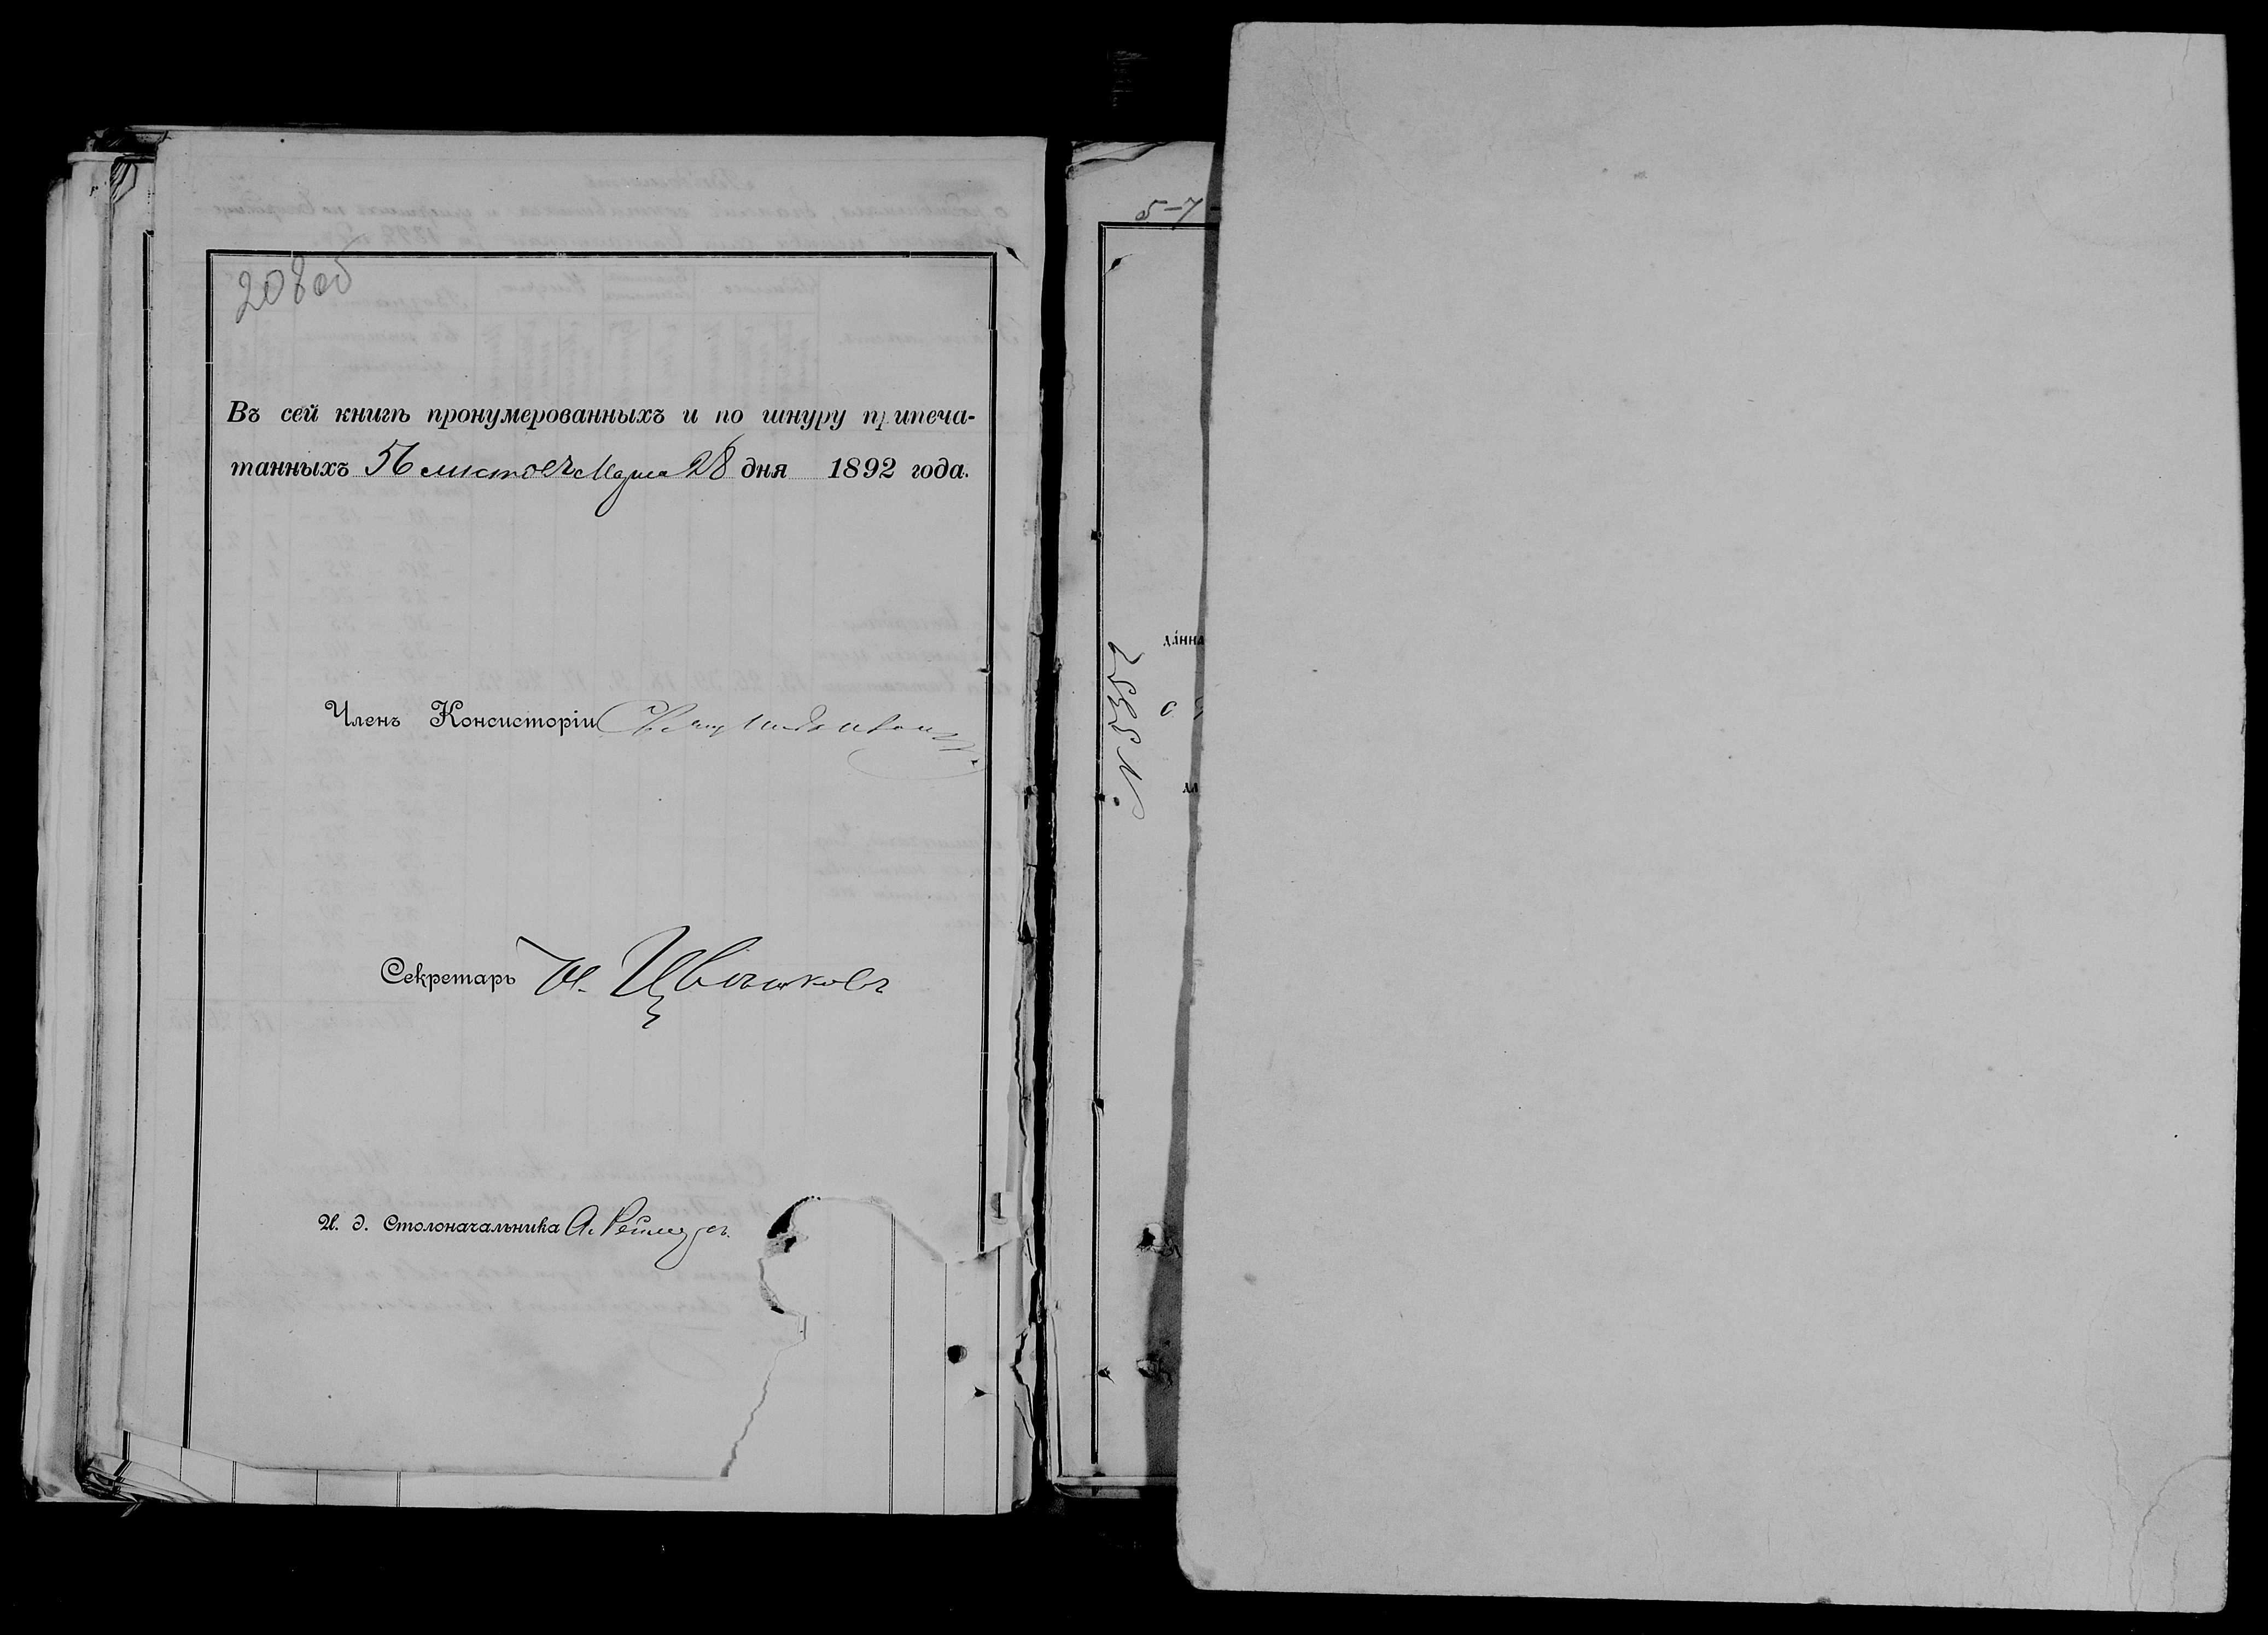 208об
Въ сей книгѣ пронумерованныхъ и по шнуру припеча-
танныхъ 56 листовъ Марта 28 дня 1892 года.
Членъ Консисторіи Свящ
Секретарь Н. Цвѣтковъ
И. д. Столоначальника А.
5-7
дánна
С
дл